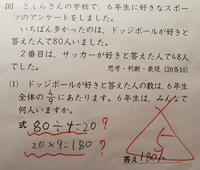 さくらさんの学校で、6年生に好きなスポー
ツのアンケートをしました。
いちばん多かったのは、ドッジボールが好きと
答えた人で80人いました。
2番目は、サッカーが好きと答えた人で48人
でした。
思考・判断・表現(20各10)
(1) ドッジボールが好きと答えた人の数は、6年生
全体の4/9にあたります。6年生は、みんなで
何人いますか。
式 80÷4=20 ?
20×9=180 ?
答え 180人